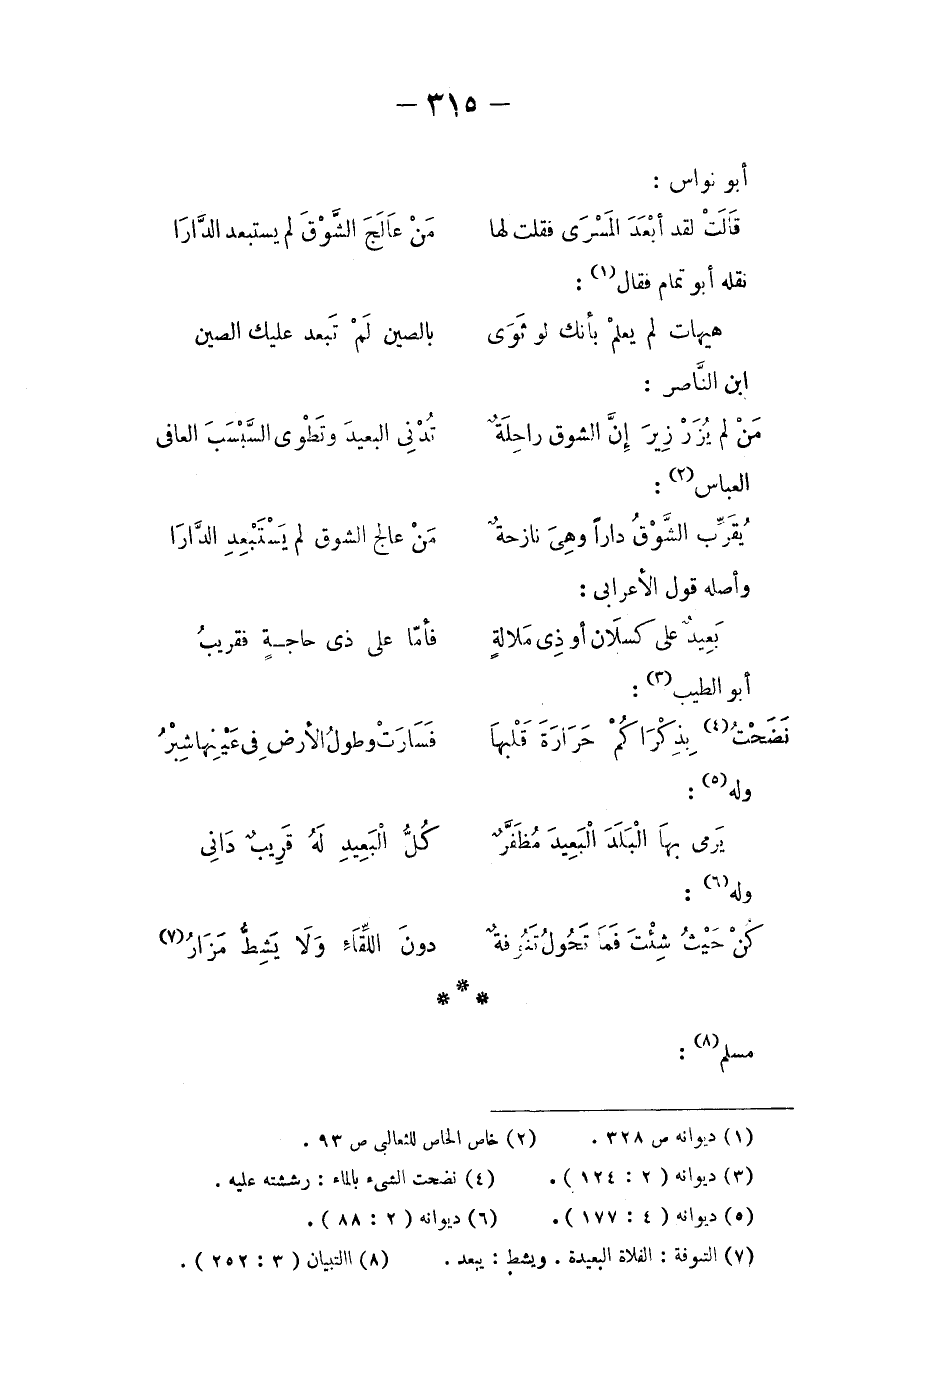 — ٣١٥ —
أبو نواس :
قَالَتْ لقد أبْعَدَ المَسْرَى فقلت لها    مَنْ عَالَجَ الشَّوْقَ لم يستبعد الدَّارَا
نقله أبو تمام فقال(١) :
هيهات لم يعلمْ بأنك لو ثَوَى    بالصين لَمْ تَبعد عليك الصين
ابن النَّاصر :
مَنْ لم يُزَرْ زِيرَ إنَّ الشوق راحِلَةٌ    تُدْنِى البعيدَ وتَطْوِى السَّبْسَبَ العافى
العباس(٢) :
يُقَرِّب الشَّوْقُ داراً وهىَ نازحةٌ    مَنْ عالج الشوق لم يَسْتَبْعِدِ الدَّارَا
وأصله قول الأعرابى :
بَعِيدٌ على كسلَان أو ذِى مَلالةٍ    فأمّا على ذى حاجـةٍ فقريبُ
أبو الطيب(٣) :
نَضَحْتُ(٤) بِذِكْرَاكُمْ حَرَارَةَ قَلْبِهَا    فَسَارَتْ وطولُ الأرض فِى عَيْنِها شِبْرُ
وله(٥) :
يَرمى بهَا الْبَلَدَ الْبَعِيدَ مُظَفَّرٌ    كُلُّ الْبَعِيدِ لَهُ قَرِيبٌ دَانِى
وله(٦) :
كُنْ حَيْثُ شِئْتَ فَمَا تَحُولُ تَنُوفةٌ    دونَ اللِّقَاءِ وَلَا يَشِطُّ مَزَارُ(٧)
***
مسلم(٨) :
(١) ديوانه ص ٣٢٨ .    (٢) خاص الخاص للثعالبى ص ٩٣ .
(٣) ديوانه ( ٢ : ١٢٤ ) .    (٤) نضحت الشىء بالماء : رششته عليه .
(٥) ديوانه ( ٤ : ١٧٧ ) .    (٦) ديوانه ( ٢ : ٨٨ ) .
(٧) التنوفة : الفلاة البعيدة . ويشط : يبعد .    (٨) االتبيان ( ٣ : ٢٥٢ ) .